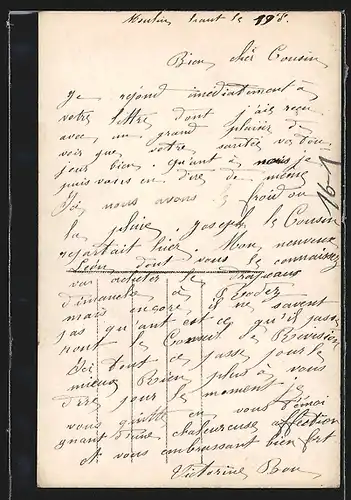 Moulin haut le 19 8.
Bien cher Cousin
Je repond imédiatement à
votre lettre dont j'ais reçu
avec un grand plaisir de
voir que votre santée va tou
jour bien qu'ant à nous je
puis vous en dire de même
Ici nous avons le froid ou
la pluie. Joseph le Cousin
repartait hier Mon neuveux
Léon dont vous le connaissez
va acheter les drapeaux
dimanche à Rodez
mais encore il ne savent
pas qu'ant est ce qu'il passe
ront le Conseil de Revision
Ici tout ce passe pour le
mieux Rien plus à vous
dire pour le moment je
vous quitte en vous témoi
gnant d'une chaleureuse affection
Et vous embrassant bien fort
Victorine
16-1